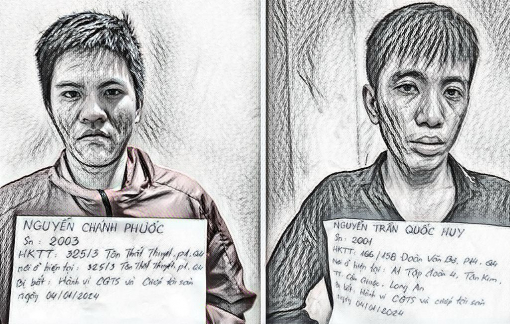 NGUYỄN CHÁNH PHƯỚC
Sn : 2003
HKTT: 325/3 Tôn Thất Thuyết, p1, Q4
nơi ở hiện tại: 325/3 Tôn Thất Thuyết, p1, Q4
Bị bắt: Hành vi CGTS và chiếm tài sản
ngày 04/01/2024
NGUYỄN TRẦN QUỐC HUY
Sn : 2001
HKTT: 166/15B Đoàn Văn Bơ, P14, Q4
Nơi ở hiện tại: A1 Tập đoàn 4, Tân Kim,
TT. Cần Giuộc, Long An
Bị bắt: Hành vi CGTS và chiếm tài sản
ngày 04/01/2024